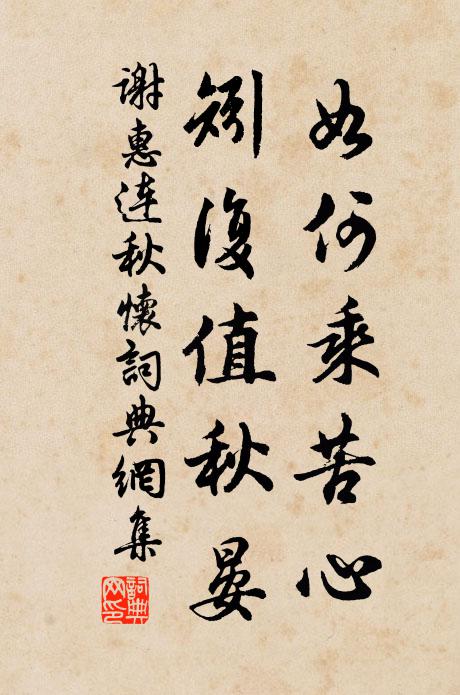 如何乘苦心
矧復值秋晏
謝惠連秋懷詞典網集
詞典网印